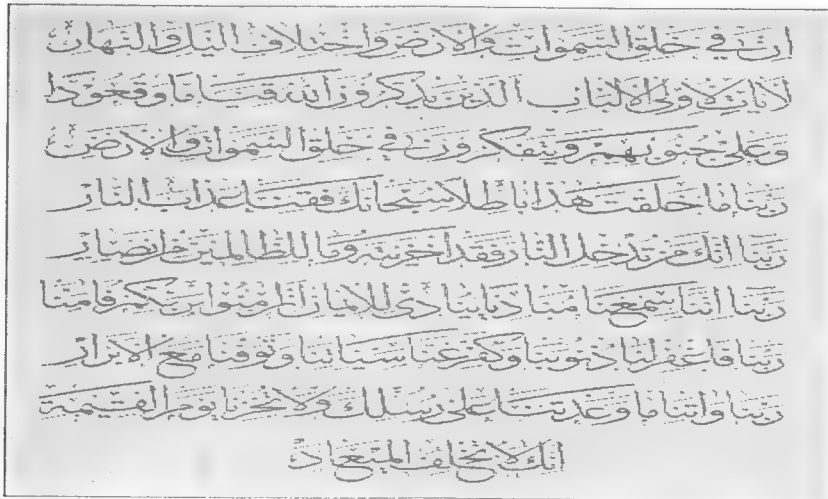 ان في خلق السموات والارض واختلاف اليل والنهار
لايات لاولى الالباب الذين يذكرون الله قياما وقعودا
وعلى جنوبهم ويتفكرون في خلق السموات والارض
ربنا ما خلقت هذا باطلا سبحانك فقنا عذاب النار
ربنا انك من تدخل النار فقد اخزيته وما للظالمين من انصار
ربنا اننا سمعنا مناديا ينادى للايمان ان امنوا بربكم فامنا
ربنا فاغفر لنا ذنوبنا وكفر عنا سيئاتنا وتوفنا مع الابرار
ربنا واتنا ما وعدتنا على رسلك ولا تخزنا يوم القيمة
انك لا تخلف الميعاد